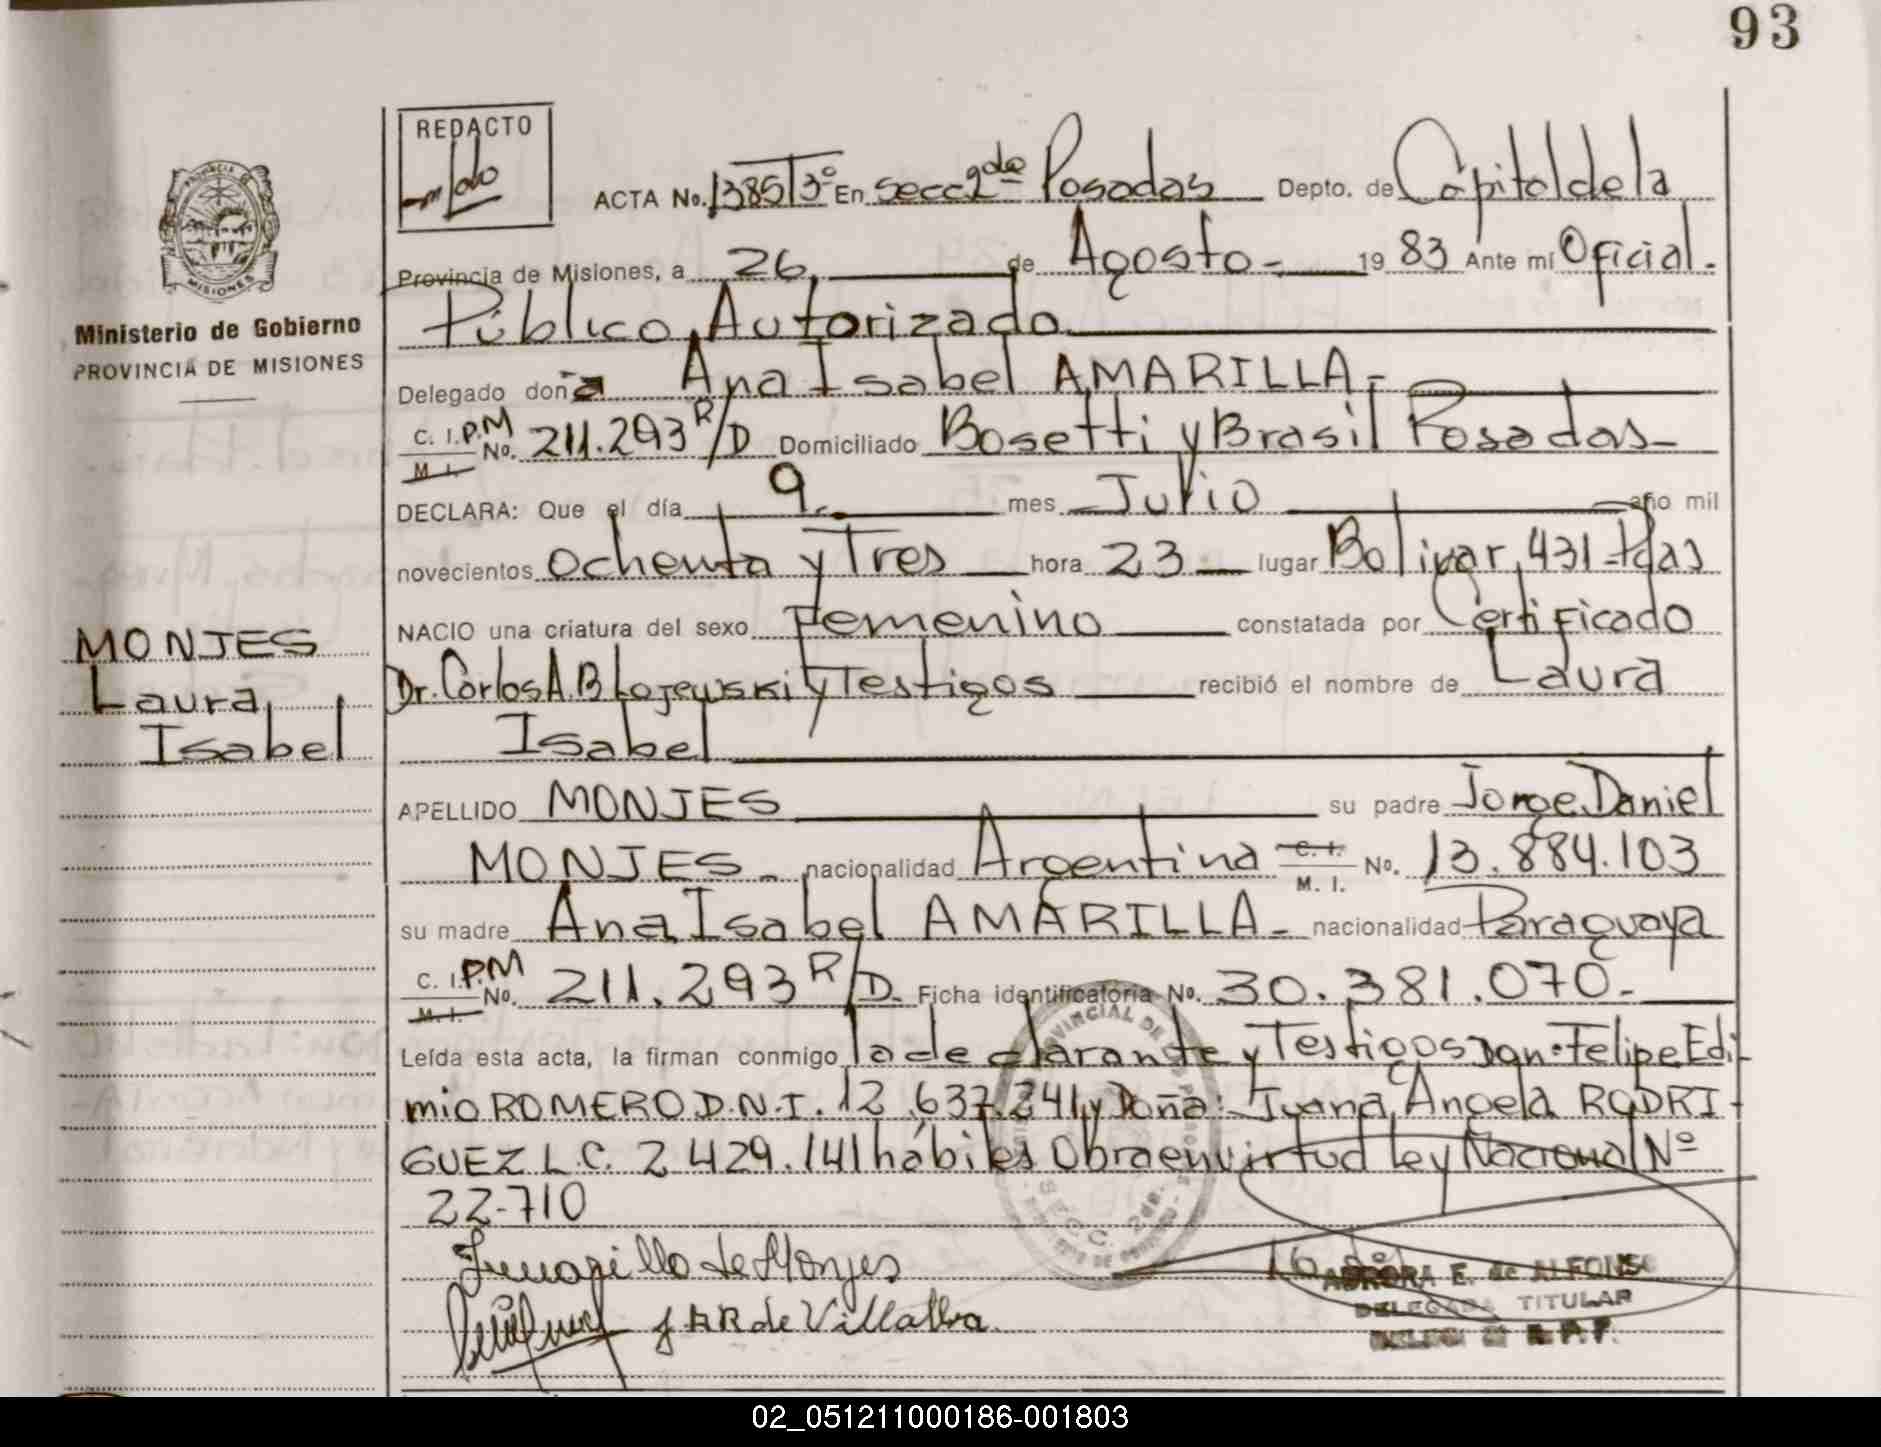 93
REDACTO
ACTA No. 1385 T 3º En Secc 2da Posadas Depto. de Capital de la
Provincia de Misiones, a 26 de Agosto 1983 Ante mí Oficial
Público Autorizado
MISIONES
Ministerio de Gobierno
PROVINCIA DE MISIONES
Delegado doña Ana Isabel AMARILLA
C. I. P.M No. 211.293 R/D Domiciliado Bosetti y Brasil Posadas
M. I.
DECLARA: Que el día 9 mes Julio año mil
novecientos ochenta y Tres hora 23 lugar Bolivar 431 Pdas
NACIO una criatura del sexo Femenino constatada por Certificado
Dr. Carlos A. Blojewski y Testigos recibió el nombre de Laura
Isabel
MONJES
Laura
Isabel
APELLIDO MONJES su padre Jorge Daniel
MONJES nacionalidad Argentina C. I. M. I. No. 13.884.103
su madre Ana Isabel AMARILLA nacionalidad Paraguaya
C. I. P.M No. 211.293 R/D. Ficha identificatoria No. 30.381.070.
M. I.
Leída esta acta, la firman conmigo la declarante y Testigos Don: Felipe Edi-
mio ROMERO D.N.I. 12.637.241 y Doña: Juana Angela RODRI-
GUEZ L.C. 2.429.141 hábiles Obra en virtud Ley Nacional Nº
22.710
de Monjes
J A R de Villalba
SECC. 2da.
AURORA E. de ALFONSO
DELEGADA TITULAR
02_051211000186-001803